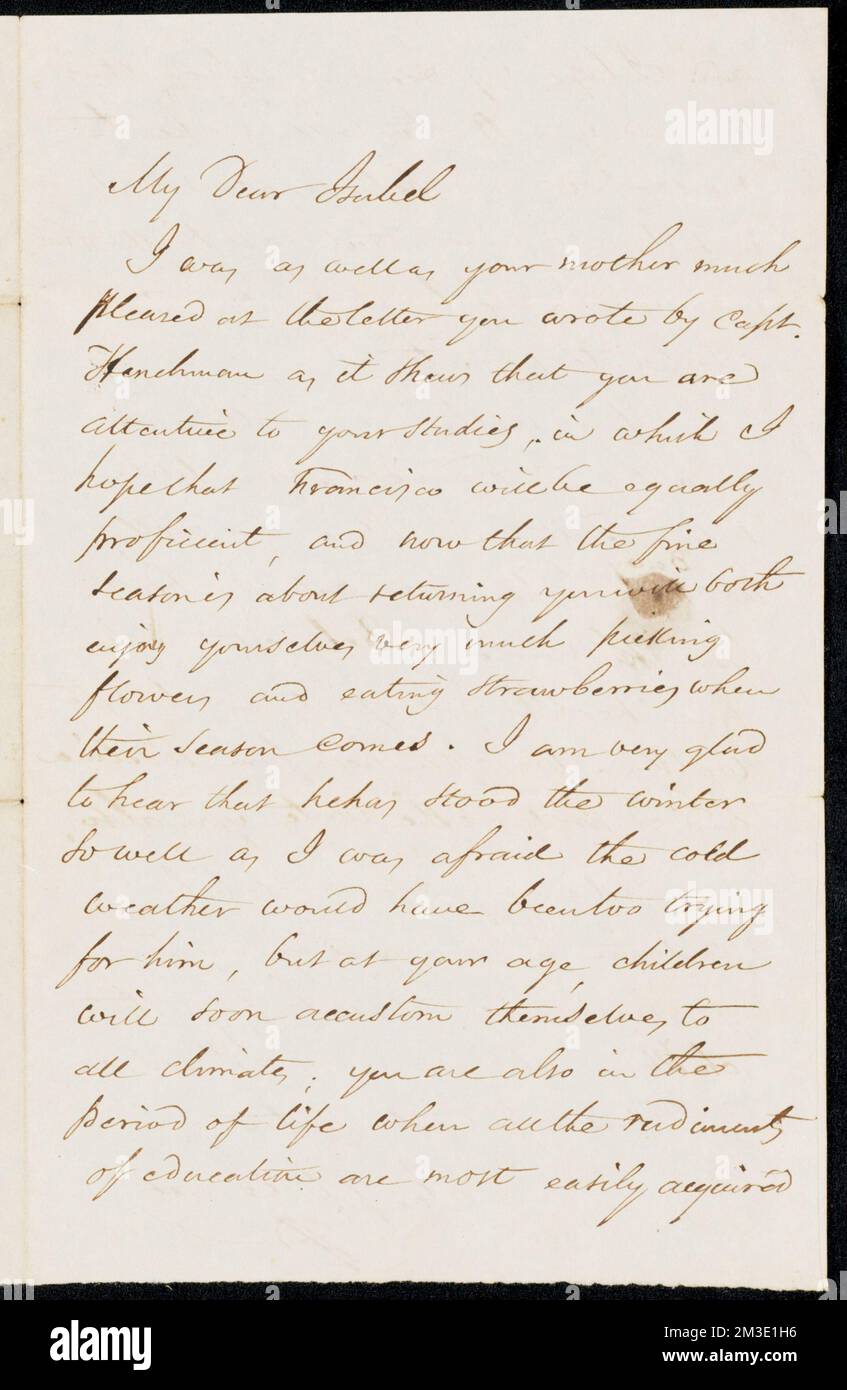 My Dear Isabel
I was as well as your mother much
pleased at the letter you wrote by Capt.
Henchman as it shews that you are
attentive to your studies, in which I
hope that Francisco will be equally
proficient, and now that the fine
season is about returning you will both
enjoy yourselves very much picking
flowers and eating strawberries when
their season comes. I am very glad
to hear that he has stood the winter
so well as I was afraid the cold
weather would have been too trying
for him, but at your age, children
will soon accustom themselves to
all climates; you are also in the
period of life when all the rudiments
of education are most easily acquired
alamy
alamy
Image ID: 2M3E1H6
www.alamy.com